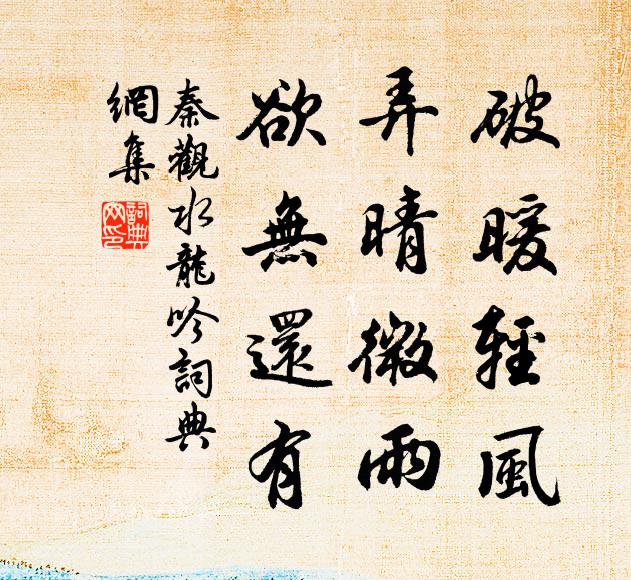 破暖輕風
弄晴微雨
欲無還有
秦觀水龍吟詞典
網集
詞典網印